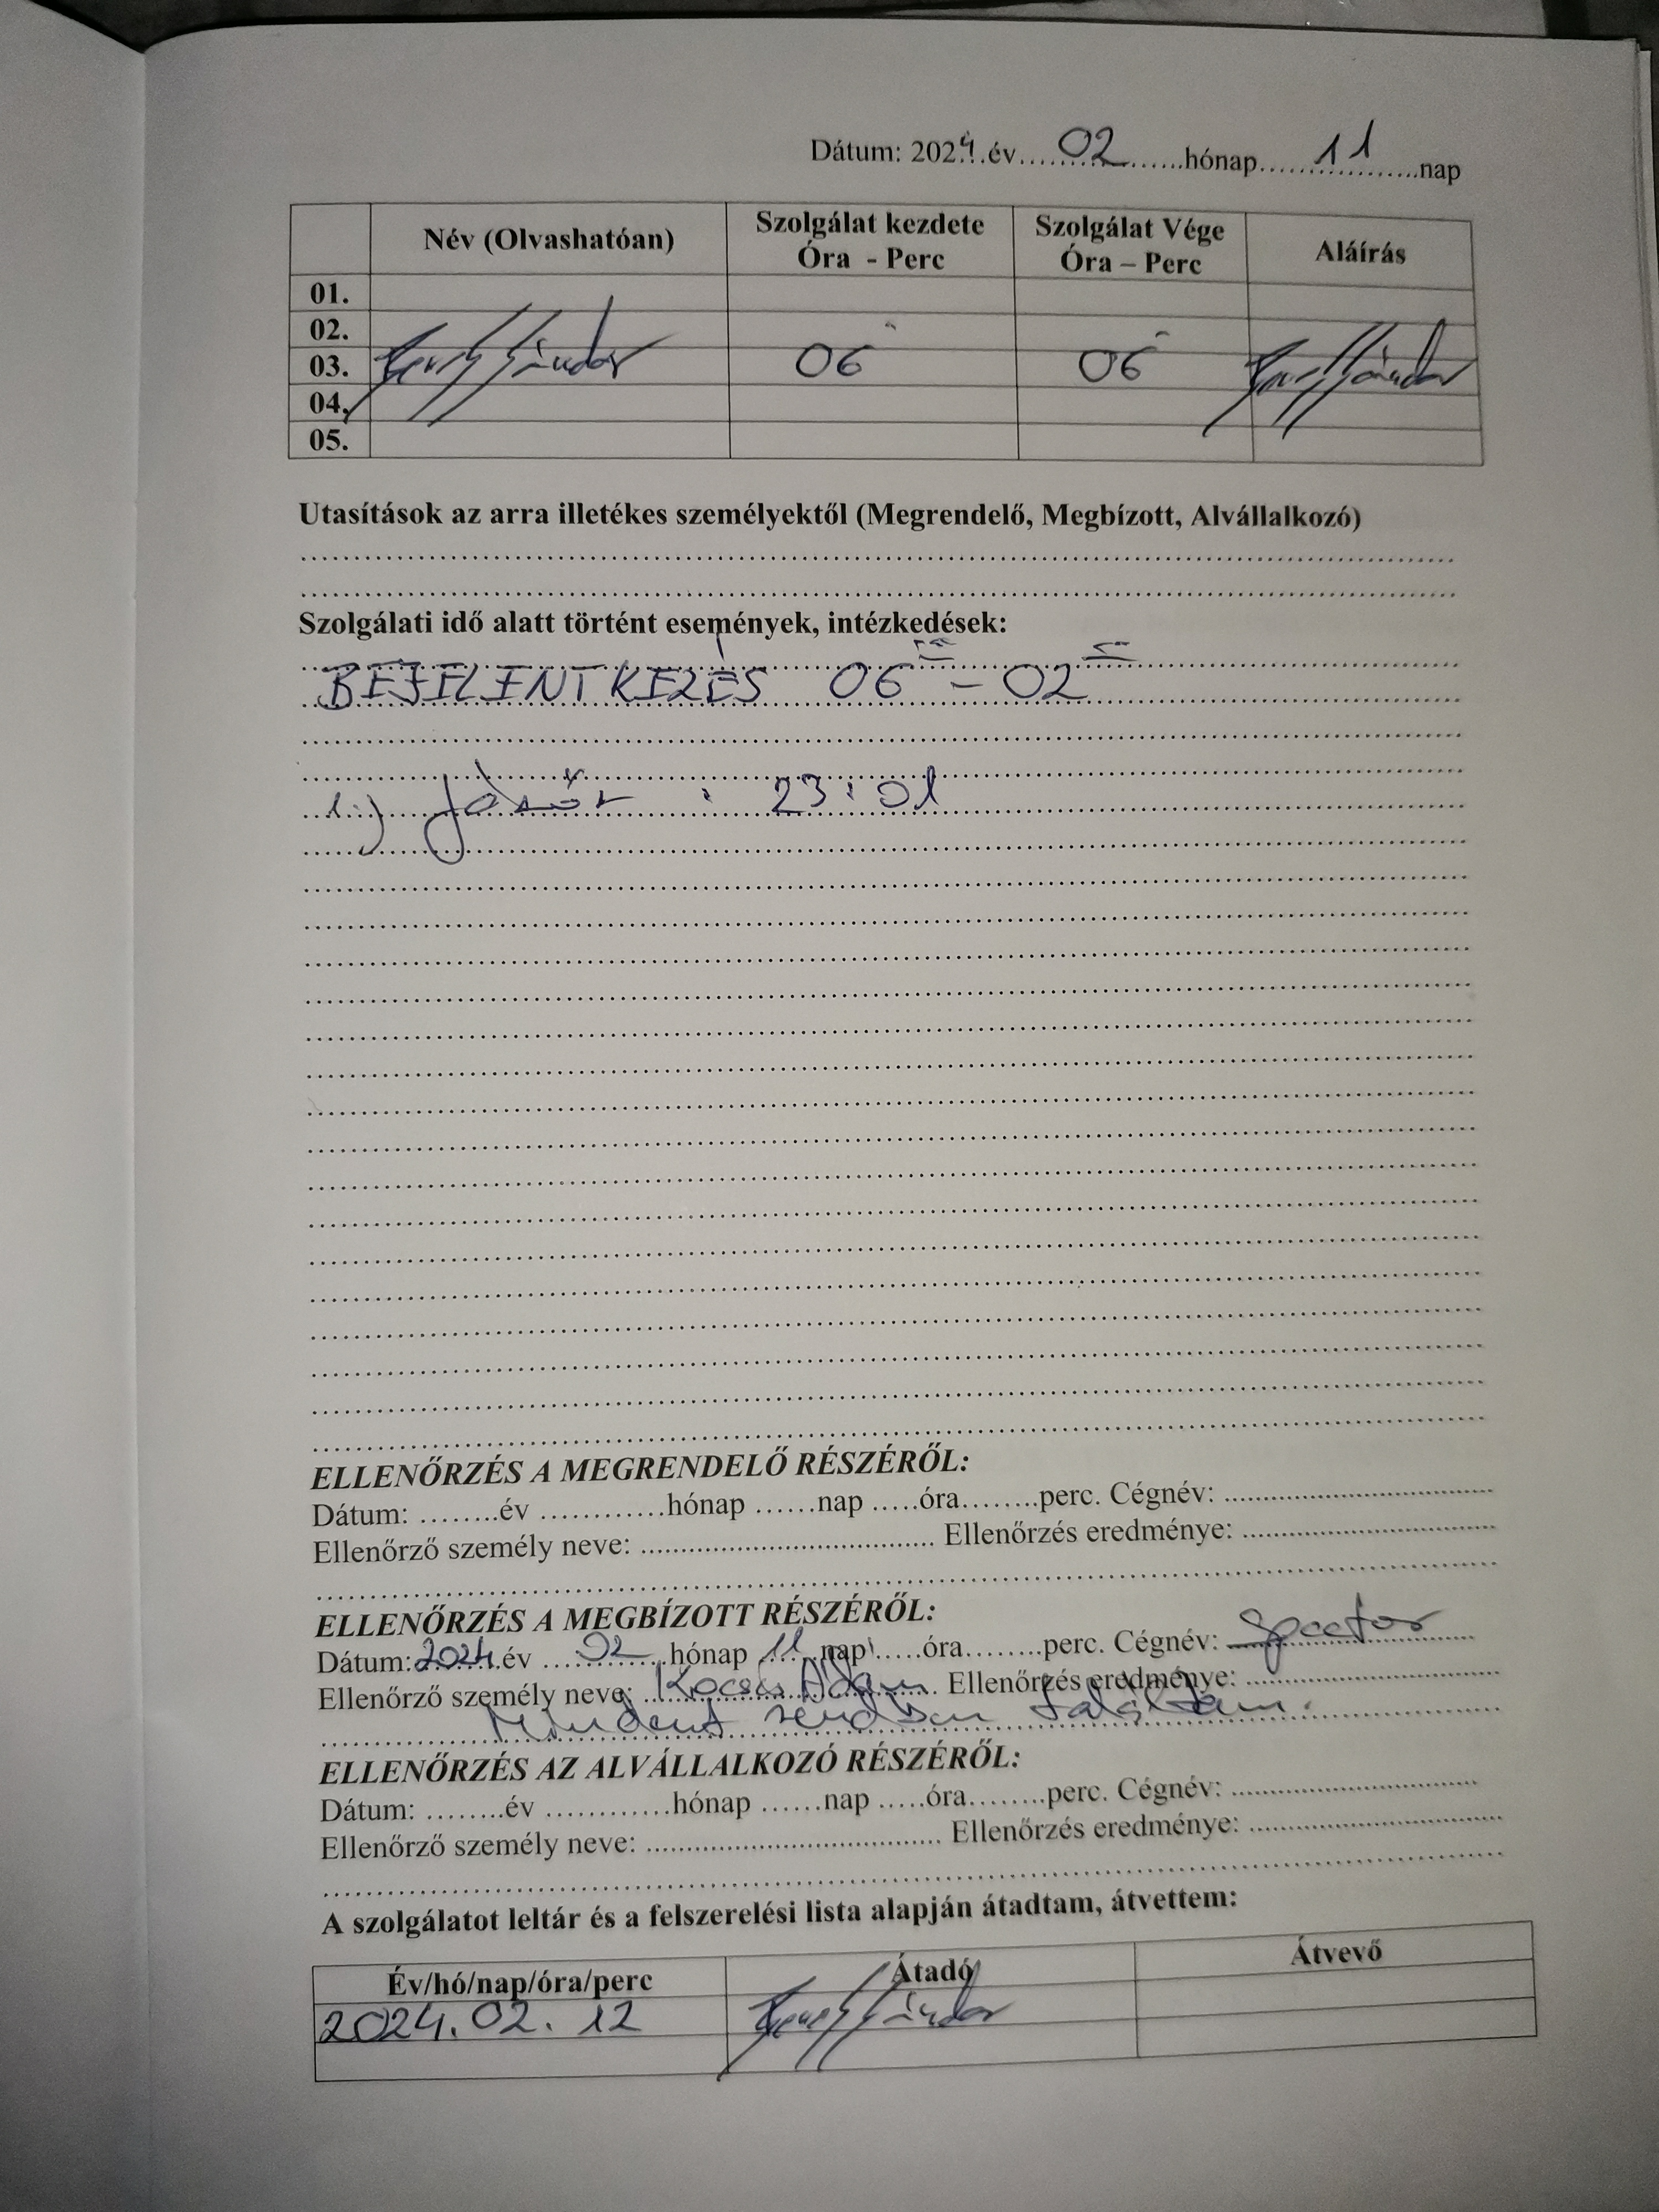 Dátum: 2024.év 02 hónap 11 nap
Név (Olvashatóan) Szolgálat kezdete Óra - Perc Szolgálat Vége Óra – Perc Aláírás
01.
02.
03. Sándor 06 06 Sándor
04.
05.
Utasítások az arra illetékes személyektől (Megrendelő, Megbízott, Alvállalkozó)
Szolgálati idő alatt történt események, intézkedések:
BEJELENTKEZÉS 06 - 02
1.) Járőr : 23:01
ELLENŐRZÉS A MEGRENDELŐ RÉSZÉRŐL:
Dátum: ........év ............hónap ......nap .....óra........perc. Cégnév: ....................................
Ellenőrző személy neve: ...................................... Ellenőrzés eredménye: ..................................
ELLENŐRZÉS A MEGBÍZOTT RÉSZÉRŐL:
Dátum: 2024 év 02 hónap 11 nap .....óra........perc. Cégnév:
Ellenőrző személy neve: Kocsis Ádám Ellenőrzés eredménye:
Mindent rendben találtam.
ELLENŐRZÉS AZ ALVÁLLALKOZÓ RÉSZÉRŐL:
Dátum: ........év ............hónap ......nap .....óra........perc. Cégnév: ....................................
Ellenőrző személy neve: ...................................... Ellenőrzés eredménye: ..................................
A szolgálatot leltár és a felszerelési lista alapján átadtam, átvettem:
Év/hó/nap/óra/perc Átadó Átvevő
2024.02.12 Sándor